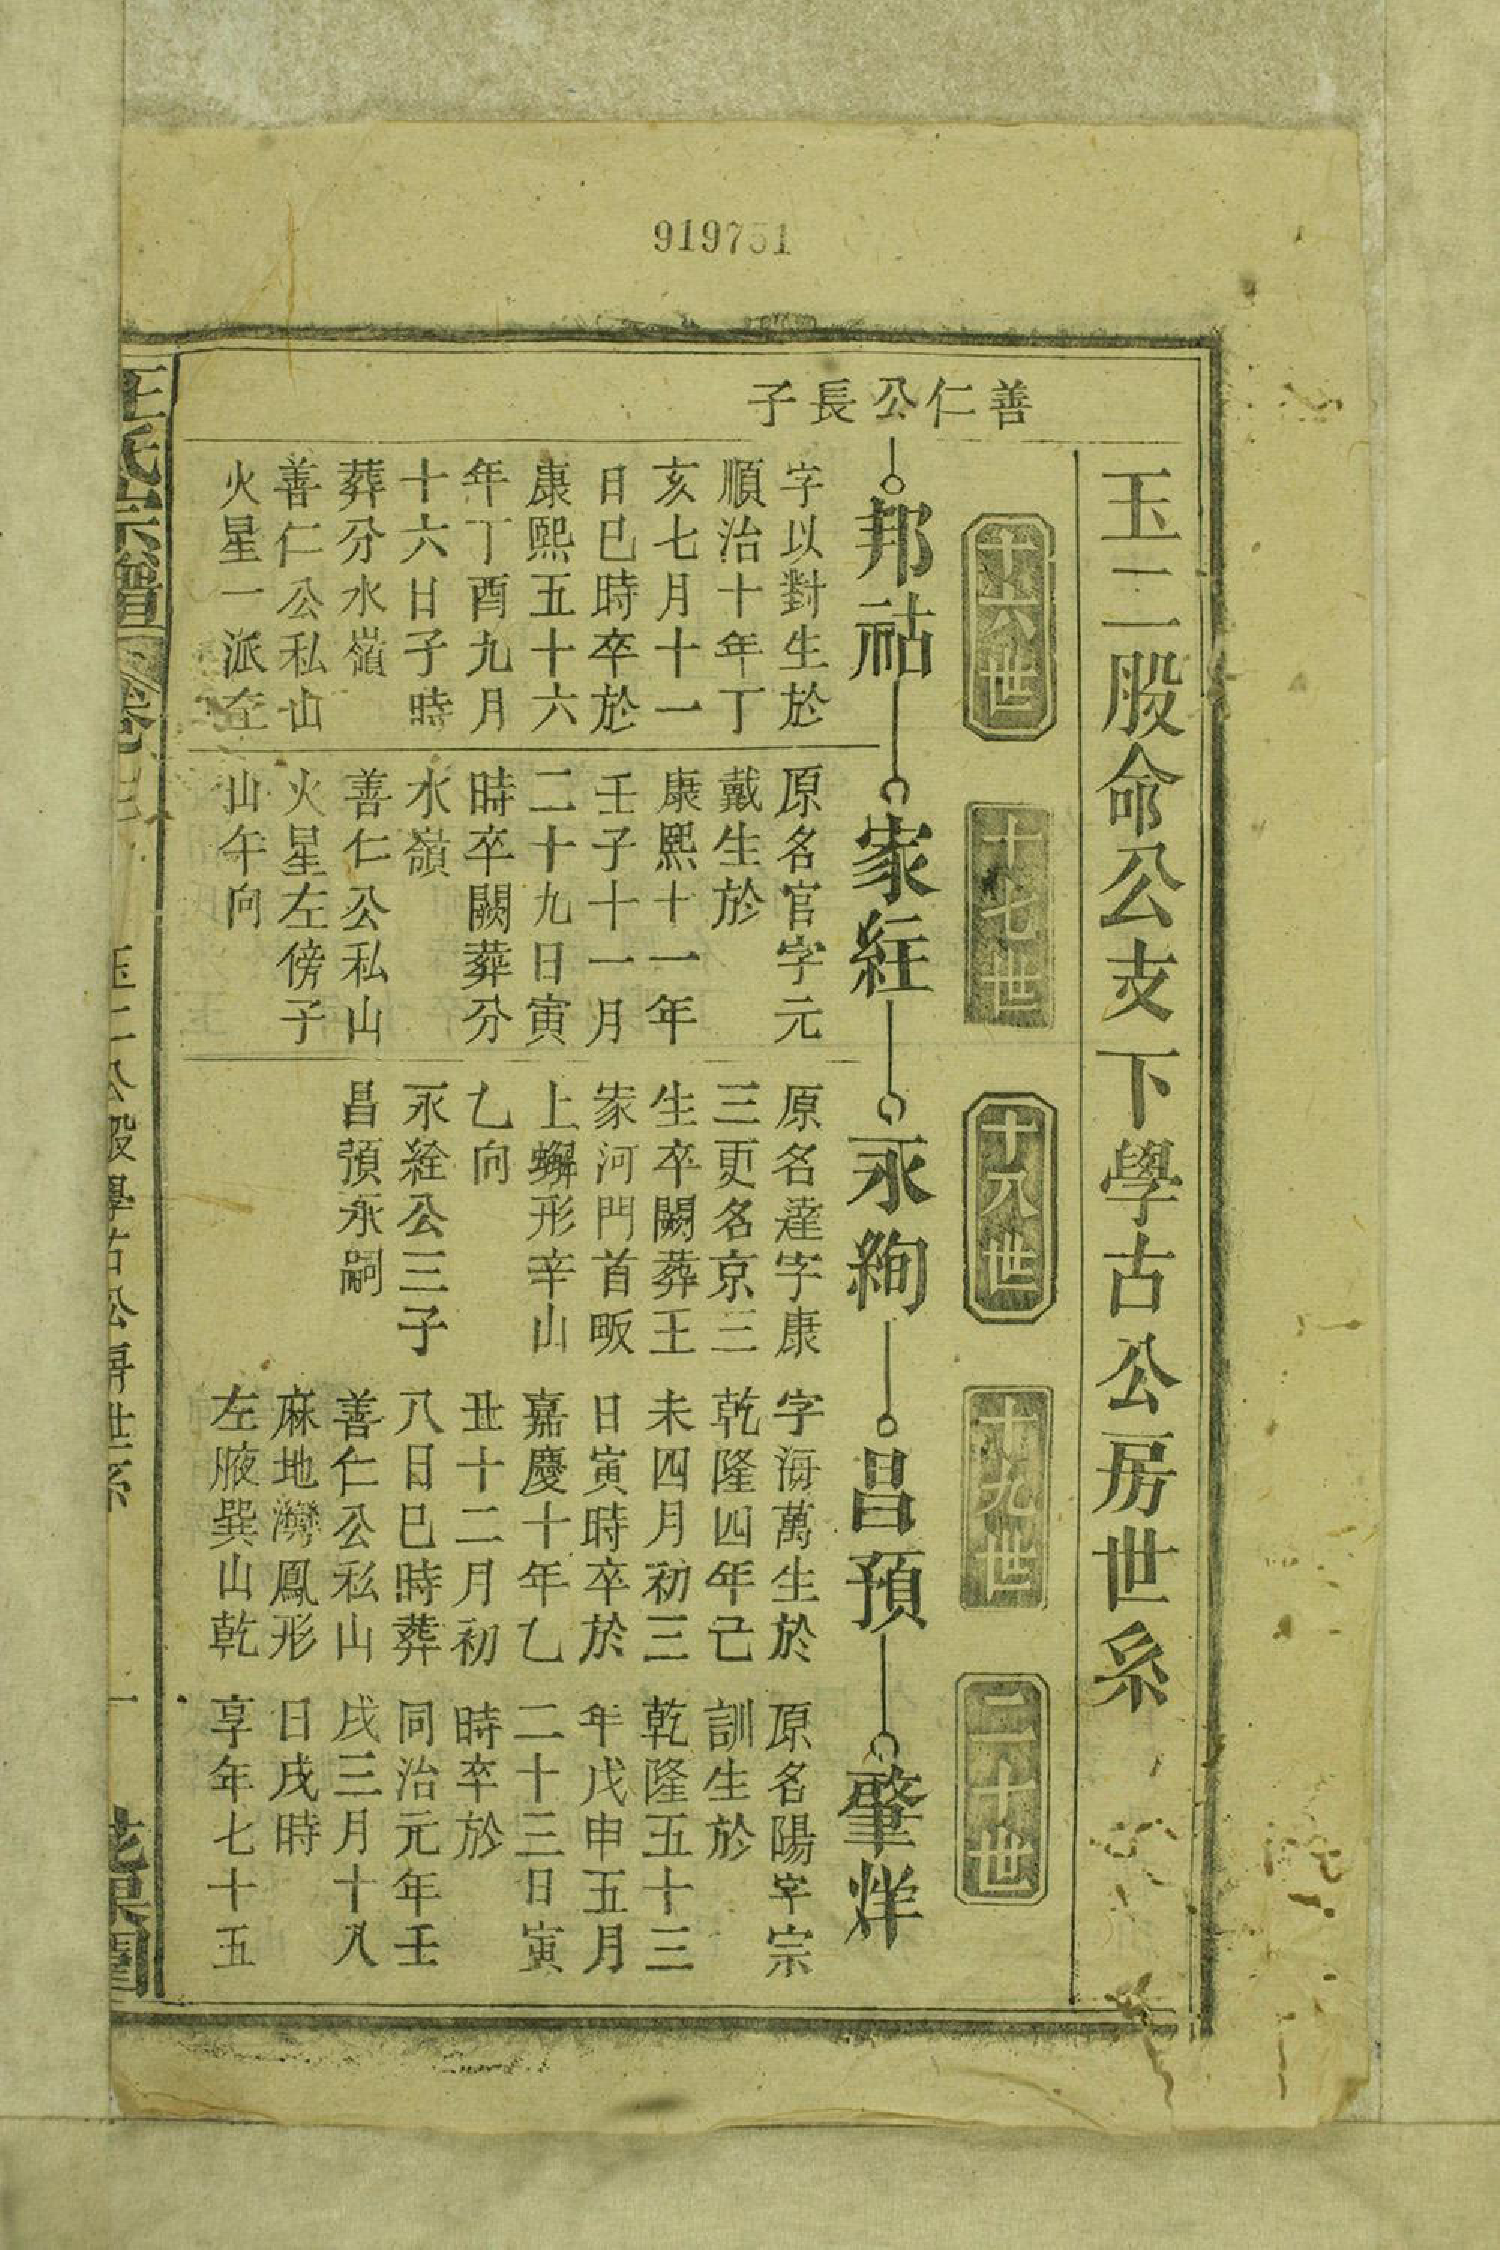 919751
玉二股命公支下學古公房世系
十六世
十七世
十八世
十九世
二十世
善仁公長子
邦祜
字以對生於
順治十年丁
亥七月十一
日巳時卒於
康熙五十六
年丁酉九月
十六日子時
葬分水嶺
善仁公私山
火星一派左
家紝
原名官字元
戴生於
康熙十一年
壬子十一月
二十九日寅
時卒闕葬分
水嶺
善仁公私山
火星左傍子
山午向
永絢
原名達字康
三更名京三
生卒闕葬王
家河門首畈
上蠏形辛山
乙向
永絟公三子
昌預永嗣
昌預
字海萬生於
乾隆四年己
未四月初三
日寅時卒於
嘉慶十年乙
丑十二月初
八日巳時葬
善仁公私山
麻地灣鳳形
左腋巽山乾
肇烊
原名陽字宗
訓生於
乾隆五十三
年戊申五月
二十三日寅
時卒於
同治元年壬
戌三月十八
日戌時
享年七十五
氏宗譜
卷
玉二公股學古公房世系
一